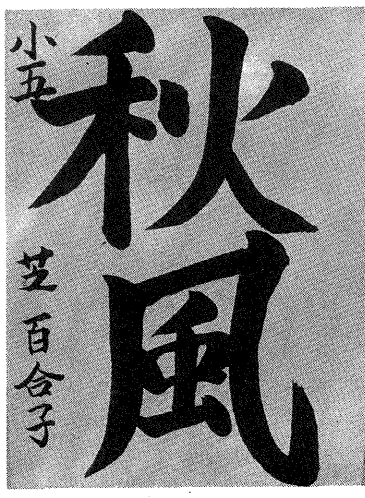 秋風
小五
芝百合子